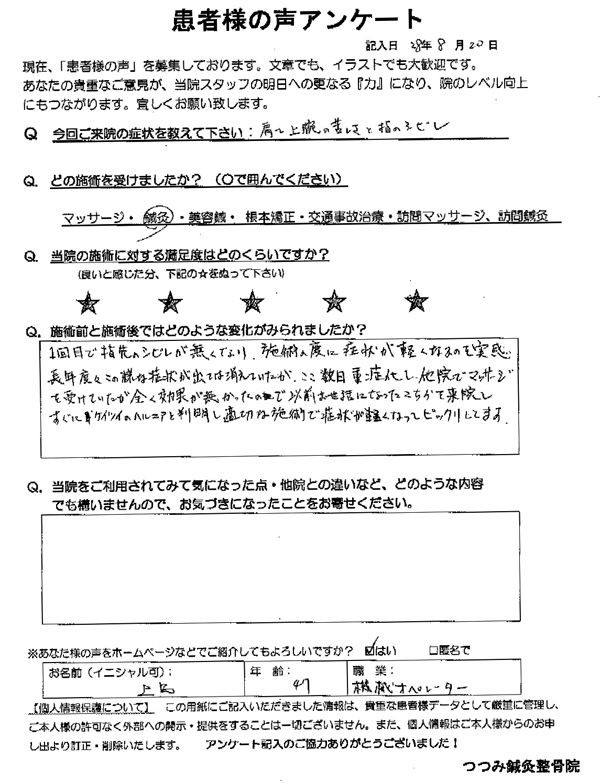 患者様の声アンケート
記入日 28年 8月 20日
現在、「患者様の声」を募集しております。文章でも、イラストでも大歓迎です。
あなたの貴重なご意見が、当院スタッフの明日への更なる『力』になり、院のレベル向上
にもつながります。宜しくお願い致します。
Q 今回ご来院の症状を教えて下さい：肩と上腕の苦しさと指のシビレ
Q. どの施術を受けましたか？（〇で囲んでください）
マッサージ・鍼灸・美容鍼・根本矯正・交通事故治療・訪問マッサージ、訪問鍼灸
Q. 当院の施術に対する満足度はどのくらいですか？
（良いと感じた分、下記の☆をぬって下さい）
★ ★ ★ ★ ★
Q. 施術前と施術後ではどのような変化がみられましたか？
1回目で指先のシビレが無くなり、施術の度に症状が軽くなるのを実感。
長年度々この様な症状が出ては消えていたが、ここ数日重症化し、他院でマッサージ
を受けていたが全く効果が無かったので以前お世話になったこちらへ来院し
すぐにケイツイのヘルニアと判明し適切な施術で症状が軽くなってビックリしてます。
Q. 当院をご利用されてみて気になった点・他院との違いなど、どのような内容
でも構いませんので、お気づきになったことをお寄せください。
※あなた様の声をホームページなどでご紹介してもよろしいですか？ ☑はい □匿名で
お名前（イニシャル可）： 年齢：47 職業：機械オペレーター
【個人情報保護について】 この用紙にご記入いただきました情報は、貴重な患者様データとして厳重に管理し、
ご本人様の許可なく外部への開示・提供をすることは一切ございません。また、個人情報はご本人様からのお申
し出より訂正・削除いたします。 アンケート記入のご協力ありがとうございました！
つつみ鍼灸整骨院